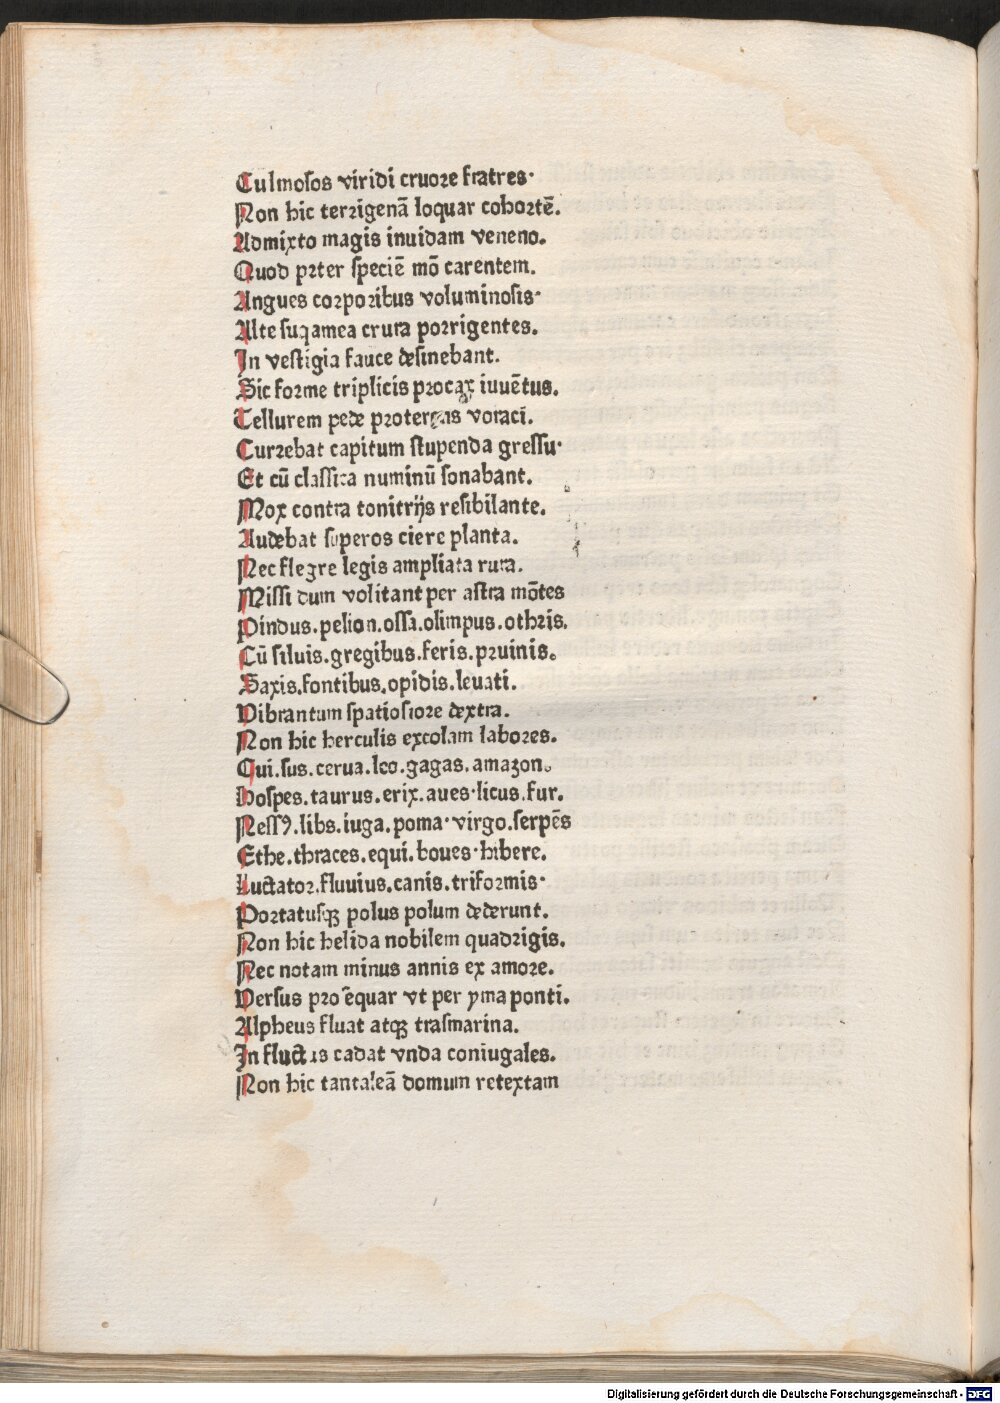 Culmosos viridi cruore fratres·
Non hic terrigenā loquar cohortē.
Admixto magis inuidam veneno.
Quod preter speciē mō carentem.
Angues corporibus voluminosis·
Alte suqamea crura porrigentes.
In vestigia fauce desinebant.
Sic forme triplicis procax iuuētus.
Tellurem pede proterens voraci.
Currebat capitum stupenda gressu·
Et cū classica numinū sonabant.
Mox contra tonitrijs resibilante.
Audebat superos ciere planta.
Nec flegre legis ampliata rura.
Missi dum volitant per astra mōtes
Pindus.pelion.ossa.olimpus.othris.
Cū siluis.gregibus.feris.pruinis.
Saxis.fontibus.opidis.leuati.
Vibrantum spatiosiore dextra.
Non hic herculis excolam labores.
Qui.sus.cerua.leo.gagas.amazon.
Hospes.taurus.erix.aues·licus.fur.
Nessꝰ.libs.iuga.poma·virgo.serpēs
Ethe.thraces.equi.boues·hibere.
Luctator.fluuius.canis.triformis·
Portatusqꝫ polus polum dederunt.
Non hic helida nobilem quadrigis.
Nec notam minus annis ex amore.
Versus pro ēquar vt per yma ponti.
Alpheus fluat atqꝫ trasmarina.
In fluctus cadat vnda coniugales.
Non hic tantaleā domum retextam
Digitalisierung gefördert durch die Deutsche Forschungsgemeinschaft - DFG